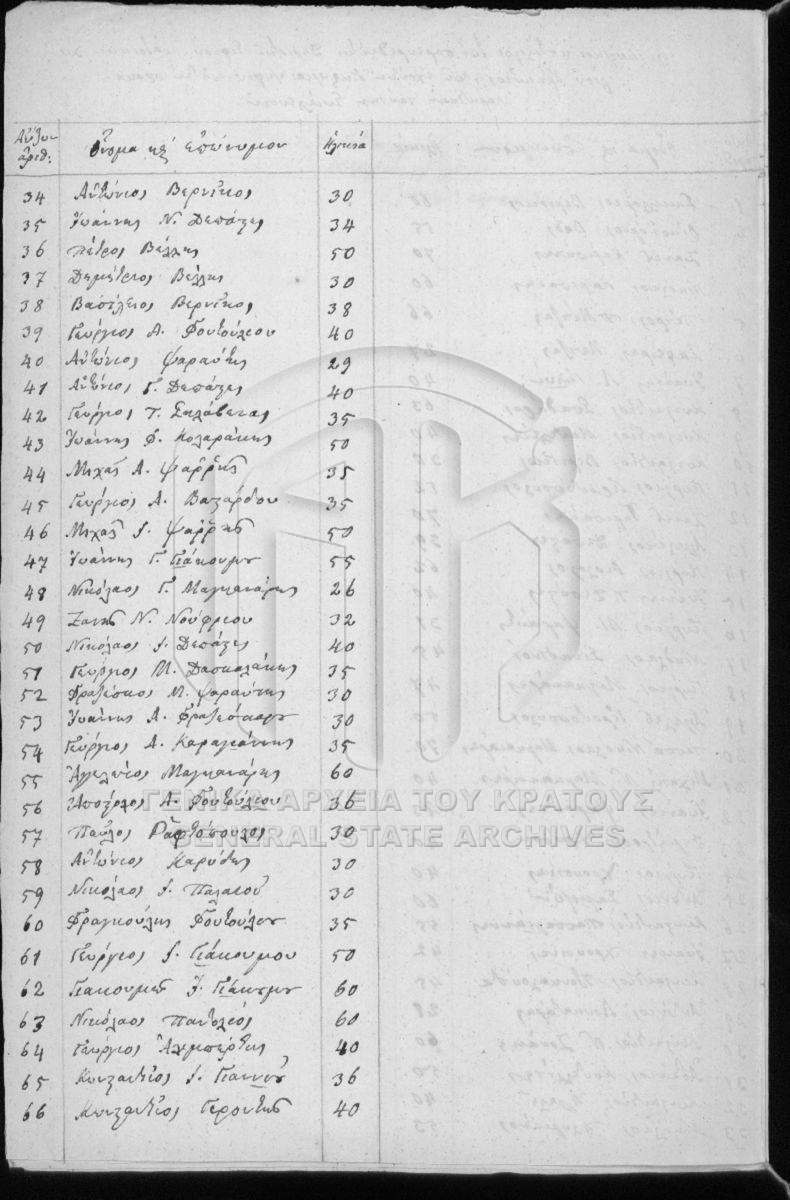 Αὔξων ἀριθ: Ὄνομα καὶ ἐπώνυμον Ἡλικία
34 Ἀντώνιος Βερνῖκος 30
35 Ἰωάννης Ν. Δεπάζης 34
36 Πέτρος Βέλλης 50
37 Δημήτριος Βέλλης 30
38 Βασίλειος Βερνῖκος 38
39 Γεώργιος Α. Φουτούλιου 40
40 Ἀντώνιος Ψαραύτης 29
41 Ἀντώνιος Γ. Δεπάζης 40
42 Γεώργιος Τ. 35
43 Ἰωάννης Κολαράκης 50
44 Μιχαὴλ Α. Ψαῤῥῆς 35
45 Γεώργιος Α. 35
46 Μιχαὴλ Ι. Ψαῤῥῆς 50
47 Ἰωάννης Γ. Γιάκουμου 55
48 Νικόλαος Γ. Μαγκανάρης 26
49 Ζανῆς Ν. Νούφριου 32
50 Νικόλαος Ι. Δεπάζης 40
51 Γεώργιος Μ. Δασκαλάκης 35
52 Φραζέσκος Μ. Ψαραύτης 30
53 Ἰωάννης Α. Φραζέσκου 30
54 Γεώργιος Α. Καραγιάννης 35
55 Ἀγγελέτος Μαγκανάρης 60
56 Ἀπόστολος Α. Φουτούλιου 36
57 Παῦλος Ῥαφτόπουλος 30
58 Ἀντώνιος Καρύδης 30
59 Νικόλαος Ι. Παλαιοῦ 30
60 Φραγκούλης Φουτούλου 35
61 Γεώργιος Ι. Γιάκουμου 50
62 Γιακουμῆς Ι. Γιάκουμου 60
63 Νικόλαος Παντολεός 60
64 Γεώργιος Ἀλιμπέρτης 40
65 Κωνσταντῖνος Ι. Γιαννοῦ 36
66 Κωνσταντῖνος Γεροντῆς 40
ΓΕΝΙΚΑ ΑΡΧΕΙΑ ΤΟΥ ΚΡΑΤΟΥΣ
GENERAL STATE ARCHIVES